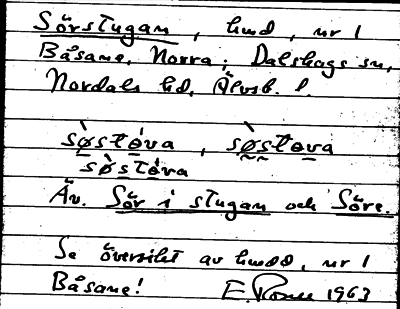 Sörstugan, hmd, nr 1
Båsane, Norra; Dalskogs sn,
Nordals hd, Älvsb. l.
sø̀stova, sø̀stova
sø̀stòva
Äv. Sör i stugan och Söre.
Se översikt av hmdd, nr 1
Båsane! E. 1963